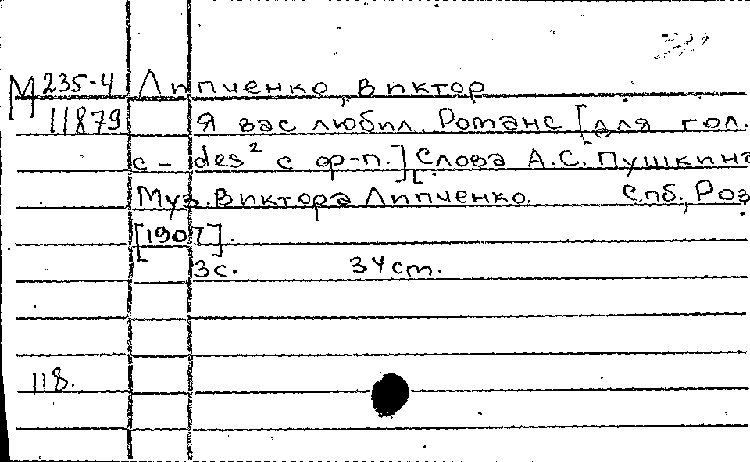 М 235-4 Липченко, Виктор
11879 Я вас любил. Романс [для гол.
c – des² с ф-п.] Слова А.С. Пушкина
Муз. Виктора Липченко. Спб., Роз
[1907].
3с. 34 см.
118.